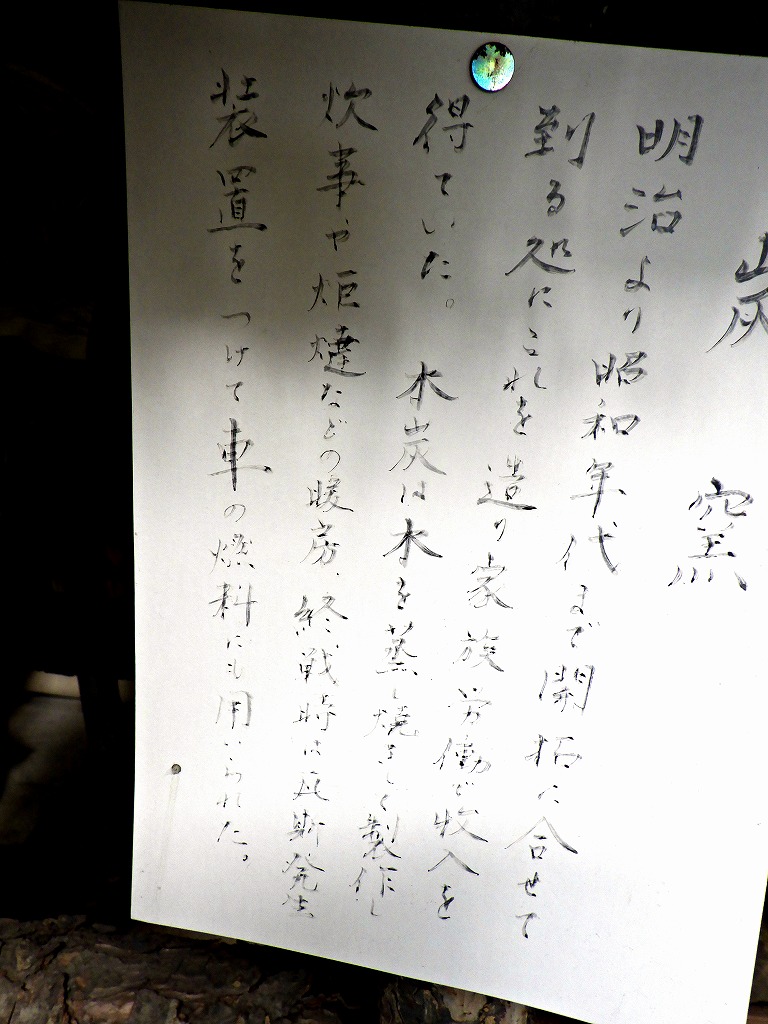 炭窯
明治より昭和年代まで開拓に合せて
到る処にこれを造り家族労働で収入を
得ていた。木炭は木を蒸し焼きしく製作し
炊事や炬燵などの暖房、終戦時は瓦斯発生
装置をつけて車の燃料にも用いられた。